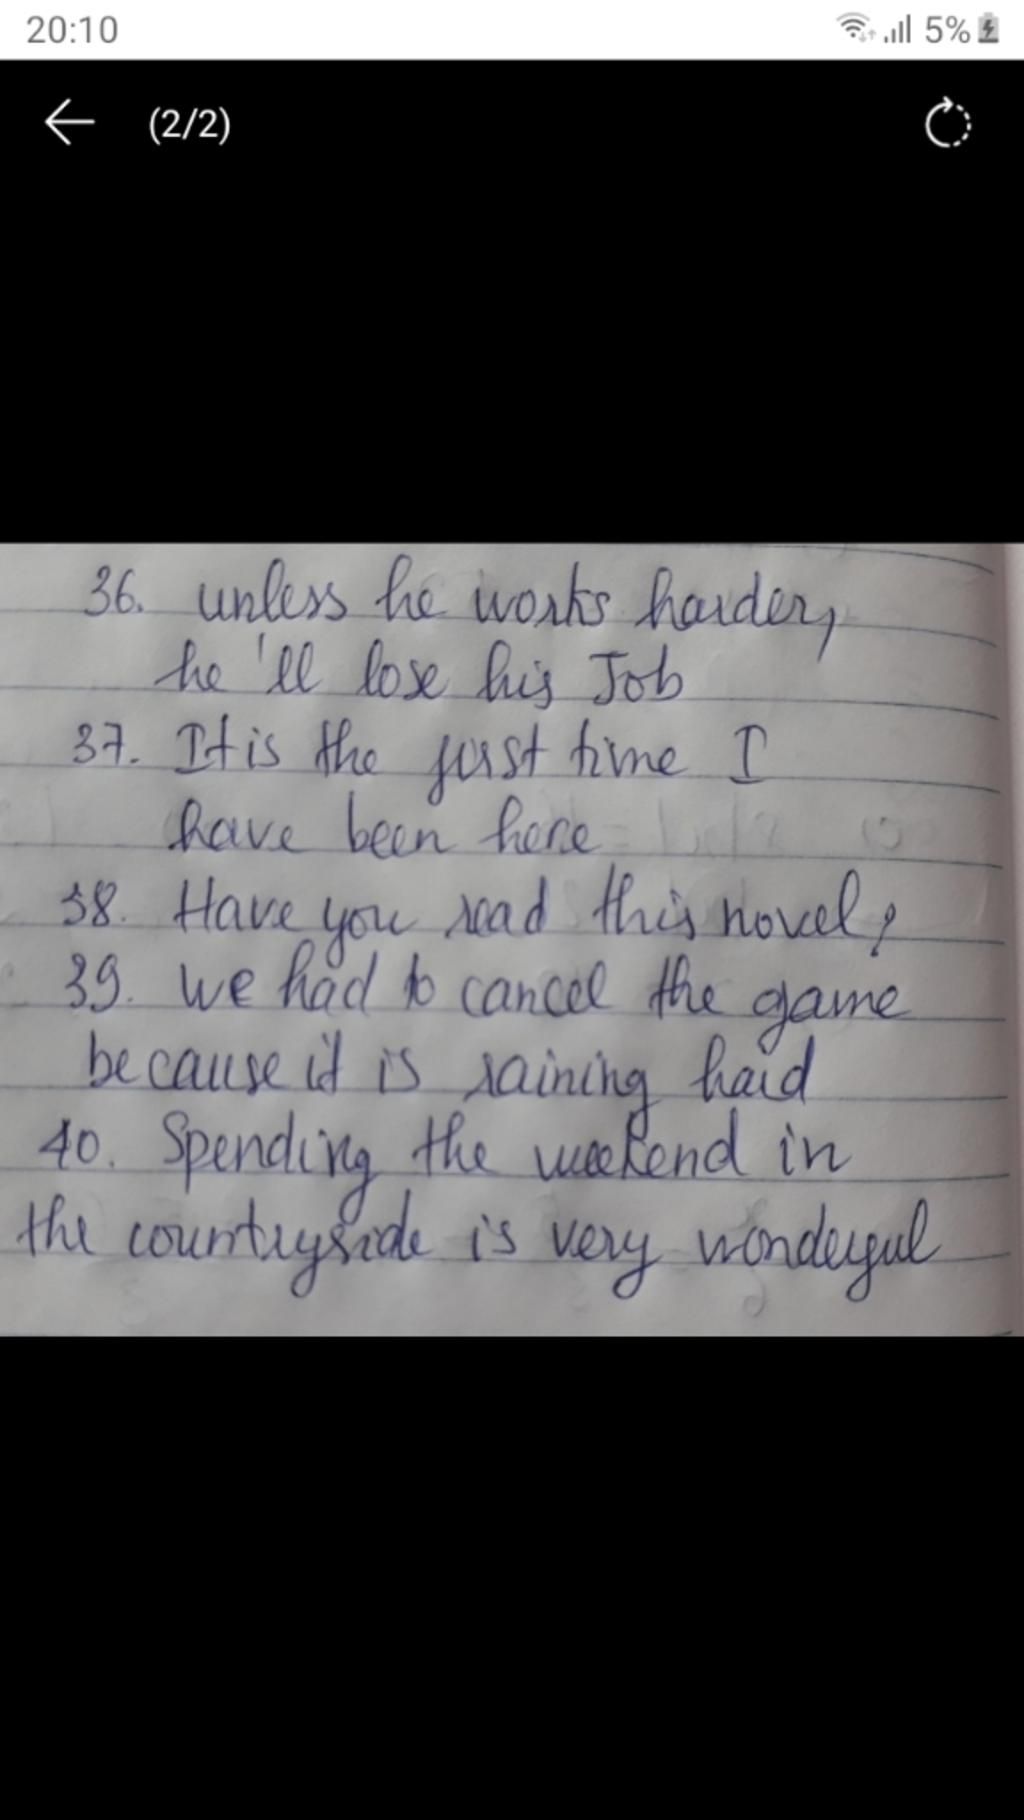 20:10
5%
(2/2)
36. unless he works harder,
he'll lose his Job
37. It is the first time I
have been here
38. Have you read this novel?
39. we had to cancel the game
because it is raining hard
40. Spending the weekend in
the countryside is very wonderful